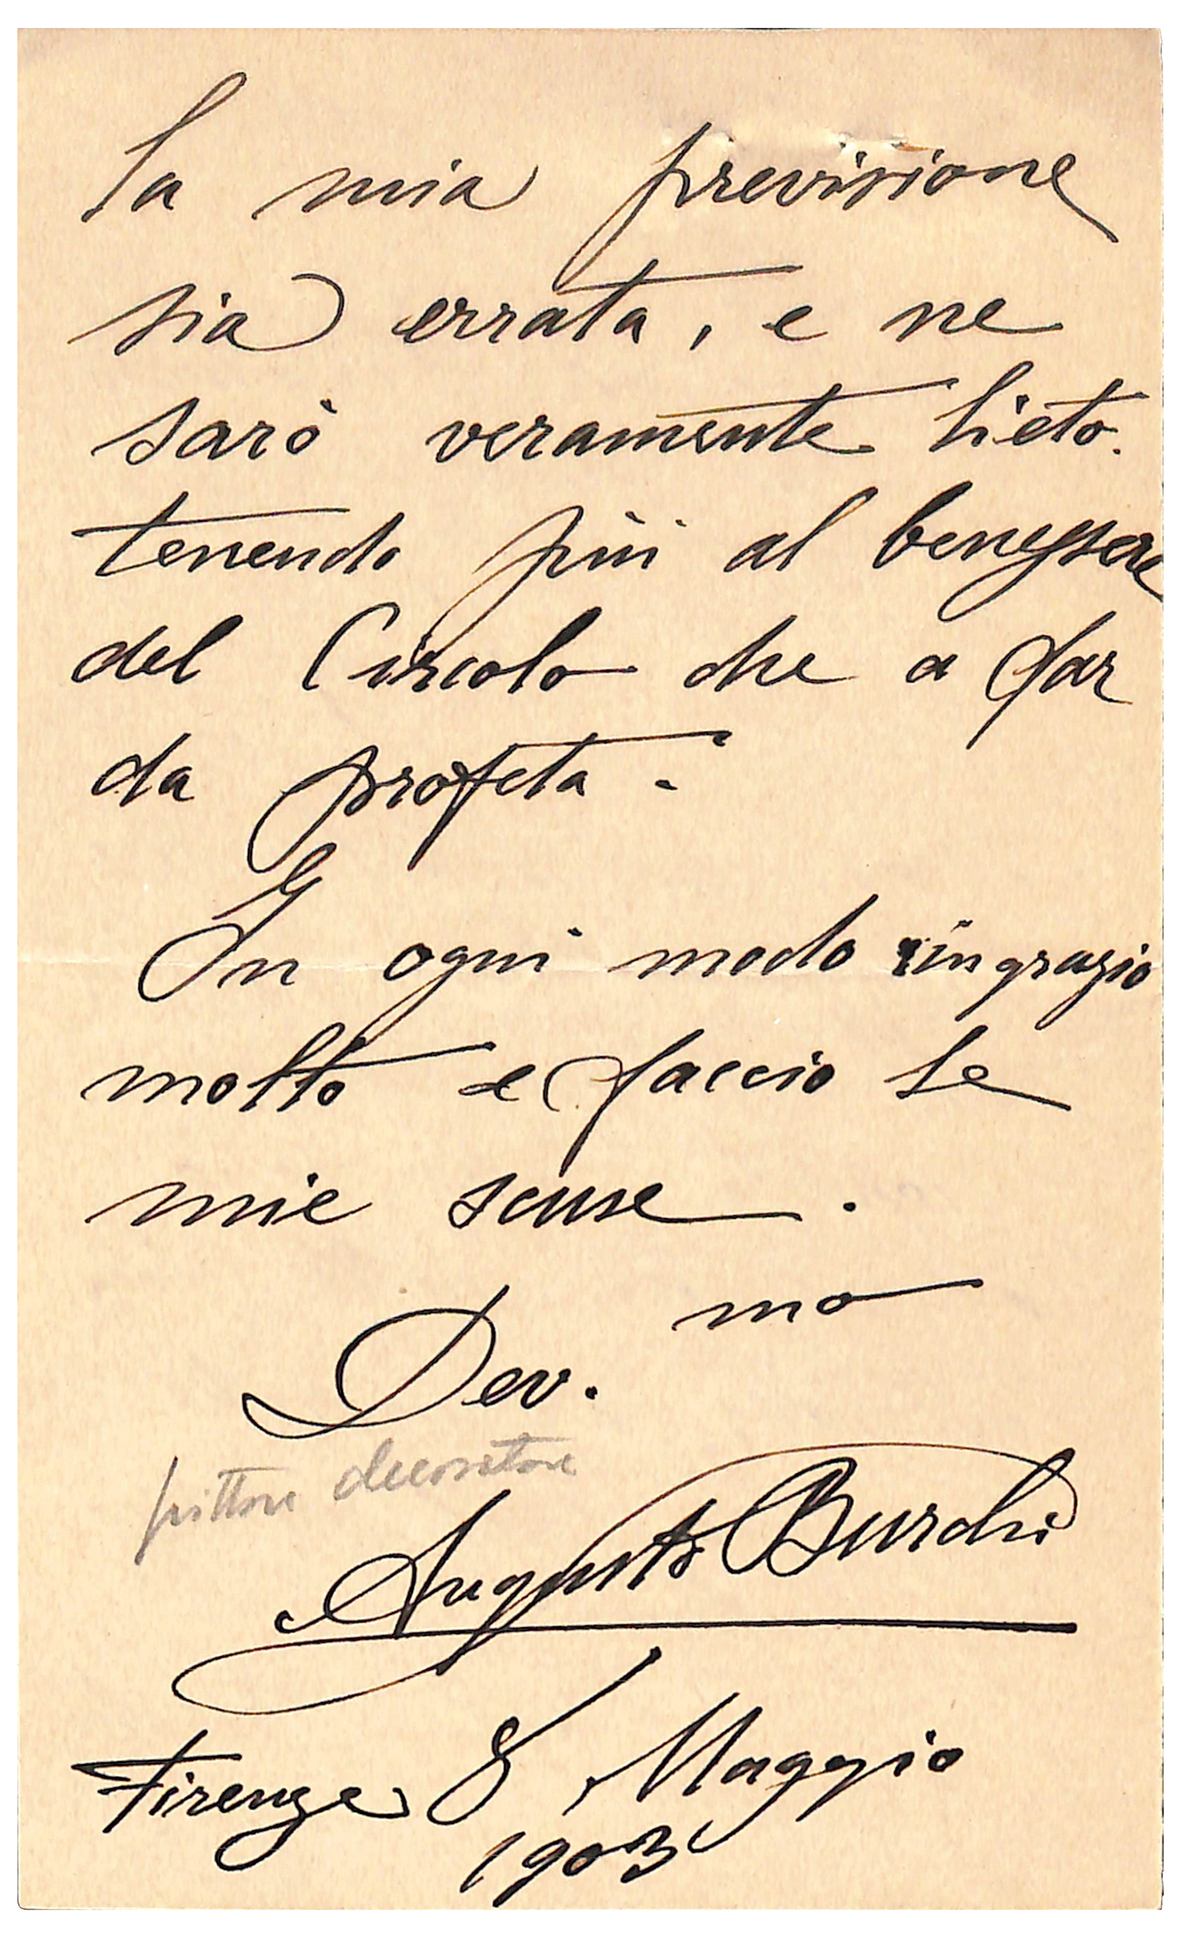 la mia previsione
sia errata, e ne
sarò veramente lieto.
tenendo più al benessere
del Circolo che a far
da profeta -
In ogni modo ringrazio
molto e faccio le
mie scuse .
Dev. mo
pittore decoratore
Augusto Burchi
Firenze 8 Maggio
1903